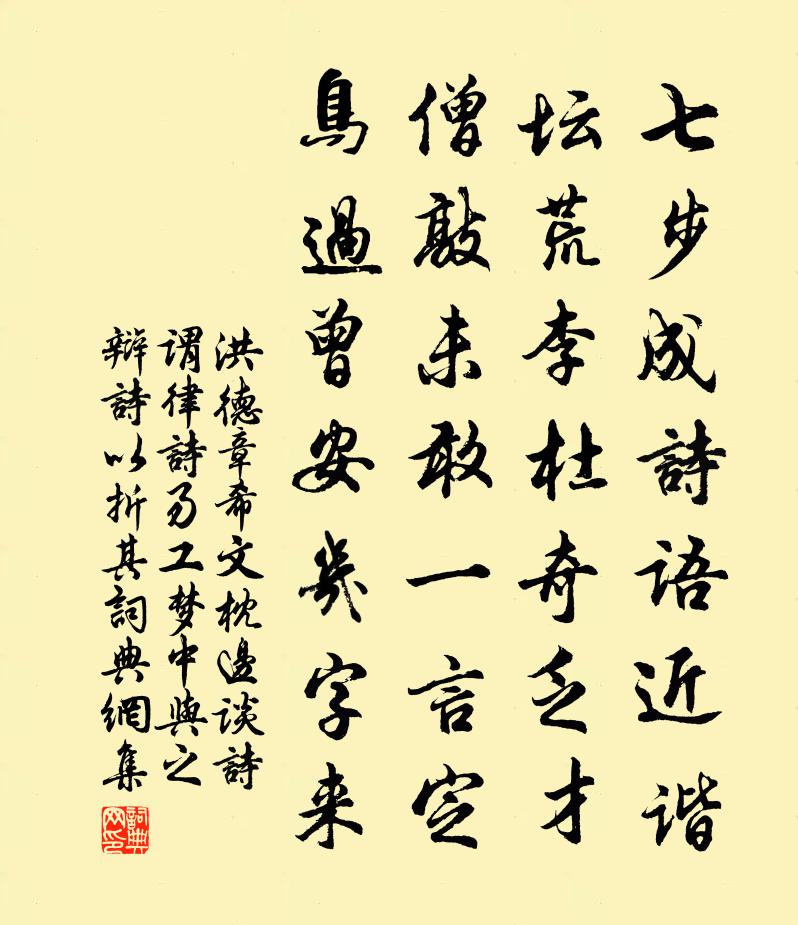 七步成詩語近谐
坛荒李杜奇乏才
僧敲未敢一言定
鳥過曾安幾字来
洪德章希文枕邊談詩
谓律詩易工梦中與之
辩詩以折其詞典網集
詞典網印